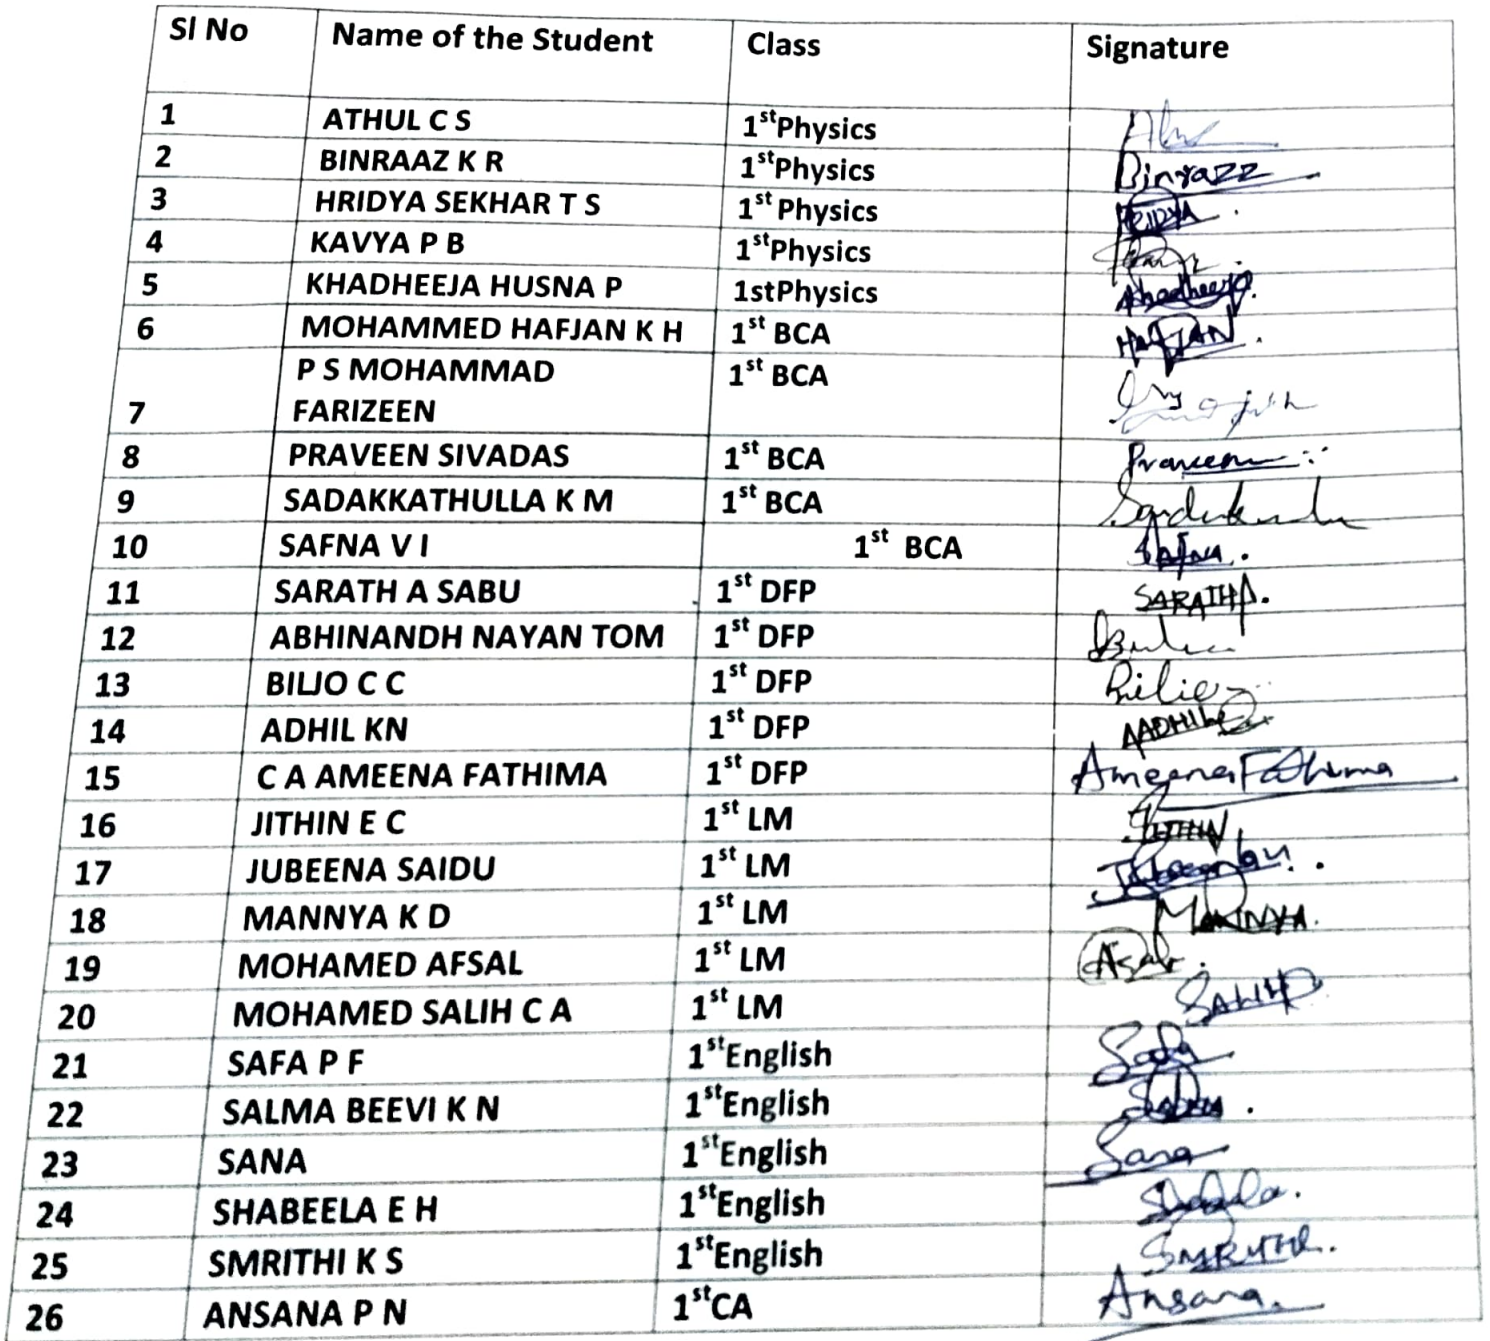 Sl No Name of the Student Class Signature
1 ATHUL C S 1stPhysics
2 BINRAAZ K R 1stPhysics Binrazz
3 HRIDYA SEKHAR T S 1st Physics HRIDYA
4 KAVYA P B 1stPhysics
5 KHADHEEJA HUSNA P 1stPhysics Khadheeja
6 MOHAMMED HAFJAN K H 1st BCA HAFJAN
P S MOHAMMAD 1st BCA
7 FARIZEEN
8 PRAVEEN SIVADAS 1st BCA Praveen
9 SADAKKATHULLA K M 1st BCA
10 SAFNA V I 1st BCA Safna.
11 SARATH A SABU 1st DFP SARATH
12 ABHINANDH NAYAN TOM 1st DFP
13 BILJO C C 1st DFP
14 ADHIL KN 1st DFP AADHIL
15 C A AMEENA FATHIMA 1st DFP Ameena Fathima
16 JITHIN E C 1st LM JITHIN
17 JUBEENA SAIDU 1st LM
18 MANNYA K D 1st LM MANNYA.
19 MOHAMED AFSAL 1st LM
20 MOHAMED SALIH C A 1st LM SALIH
21 SAFA P F 1stEnglish Safa
22 SALMA BEEVI K N 1stEnglish
23 SANA 1stEnglish Sana
24 SHABEELA E H 1stEnglish
25 SMRITHI K S 1stEnglish SMRITHI.
26 ANSANA P N 1stCA Ansana.